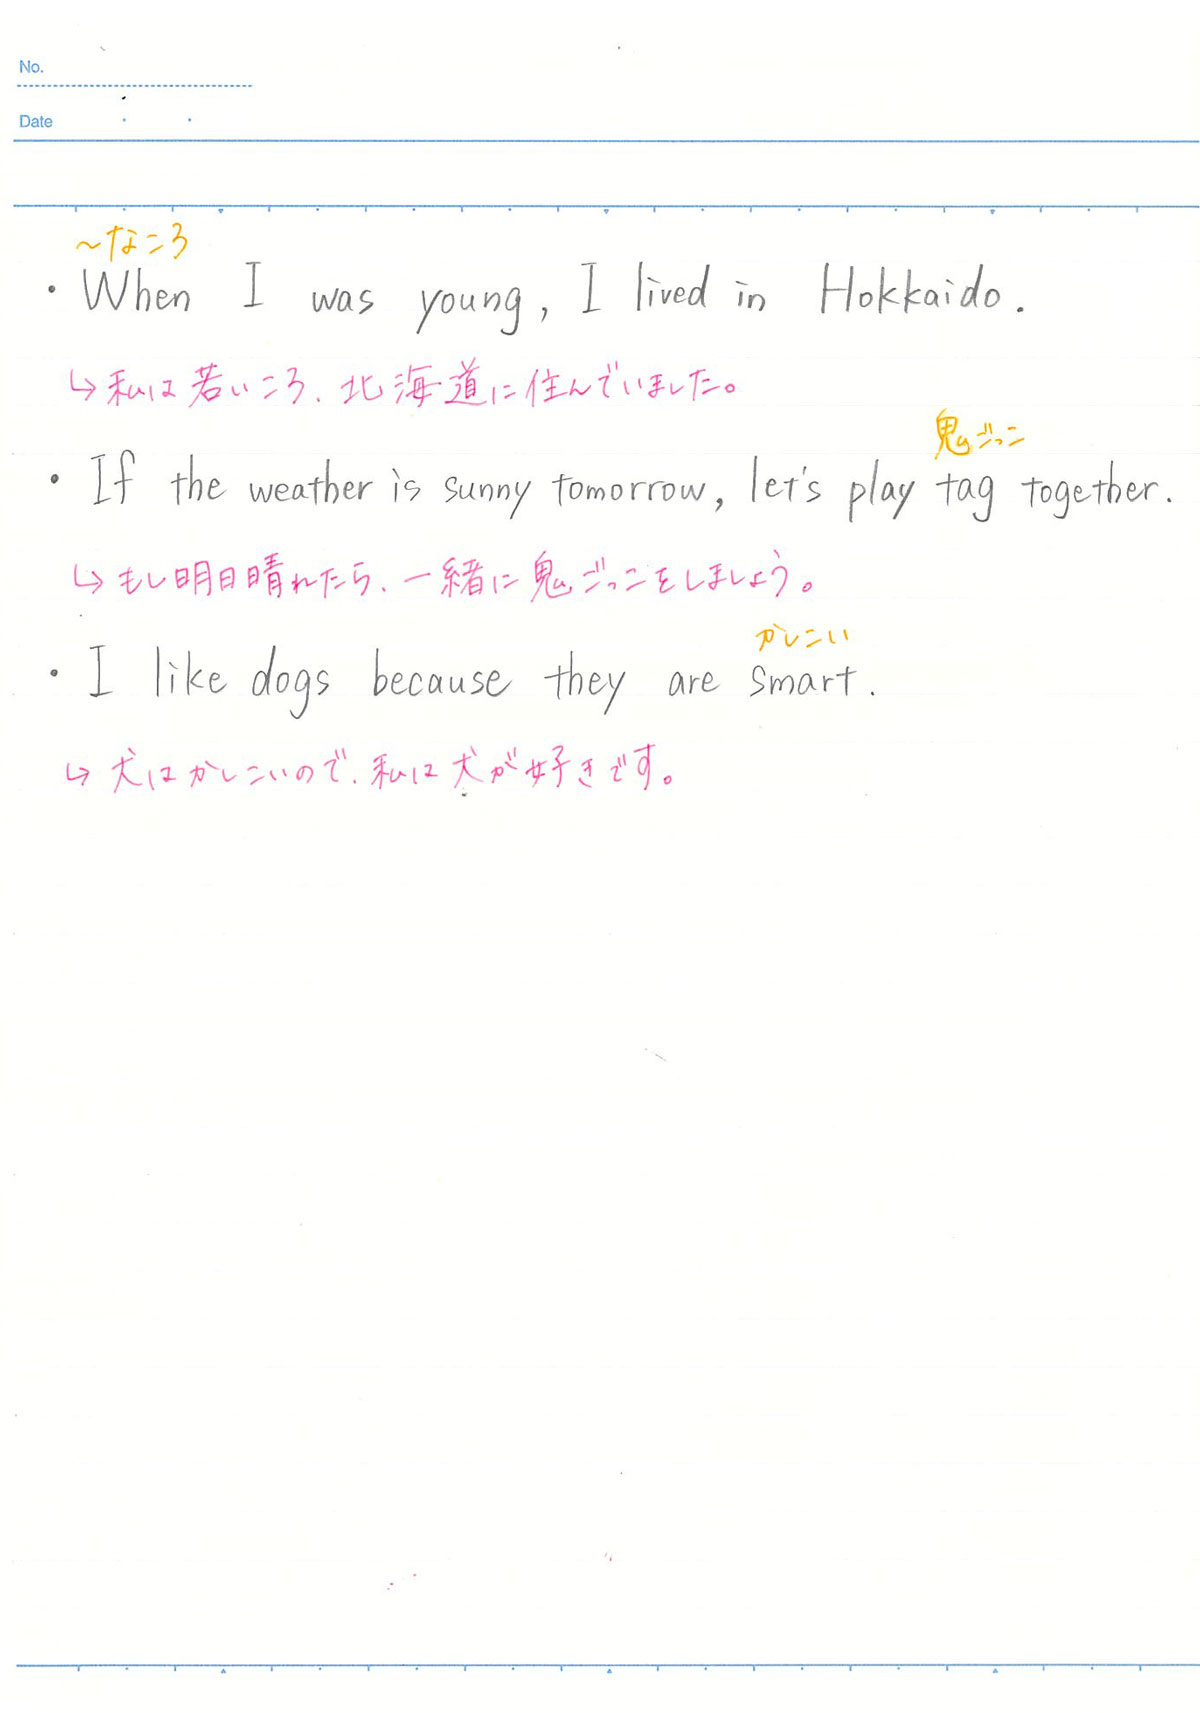 No.
Date
~なころ
・When I was young, I lived in Hokkaido.
↳私は若いころ、北海道に住んでいました。
鬼ごっこ
・If the weather is sunny tomorrow, let's play tag together.
↳もし明日晴れたら、一緒に鬼ごっこをしましょう。
かしこい
・I like dogs because they are smart.
↳犬はかしこいので、私は犬が好きです。